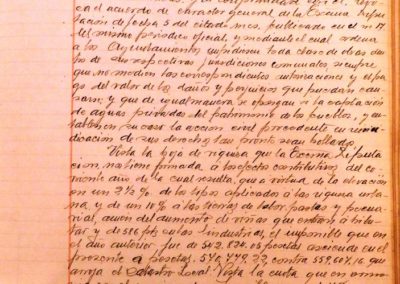 ca el acuerdo de caracter general de la Excma. Dipu-
tación de fecha 5 del citado mes, publicado en el nº 17
del mismo periodico oficial, y mediante el cual ordena
a los Ayuntamientos impidiesen toda clase de obras den-
tro de sus respectivas jurisdicciones comunales siempre
que no medien las correspondientes autorizaciones y el pa-
go del valor de los daños y perjuicios que puedan cau-
sarse; y que de igual manera se opongan a la captación
de aguas privadas del patrimonio de los pueblos, y en-
tablen en su caso la accion civil procedente en reivin-
dicacion de sus derechos tan pronto sean hollados.
Vista la hoja de riqueza que la Excma. Diputa-
ción, nos tiene formada, a los efectos contributivos del co-
rriente año de la cual resulta, que a virtud de la elevación
en un 2½ % de los tipos aplicados a la riqueza urba-
na, y de un 10% a las tierras de labor, pastos y pecua-
rias, amen del aumento de viñas que entran á tribu-
tar y de 586 pts. en las industrias, el imponible que en
el año anterior fue de 502.824.05 pesetas asciende en el
presente a pesetas. 570.479.22 contra 559.607.16 que
arroja el Catastro Local. Vista la cuota que en armo-